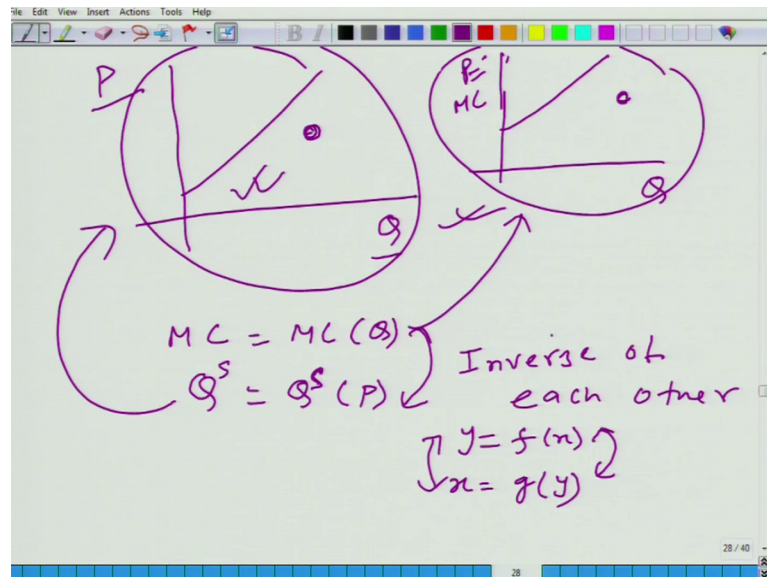 File Edit View Insert Actions Tools Help
B I
P
Q
P=
MC
Q
MC = MC(Q)
Qˢ = Qˢ(P)
Inverse of
each other
y = f(x)
x = g(y)
28 / 40
28